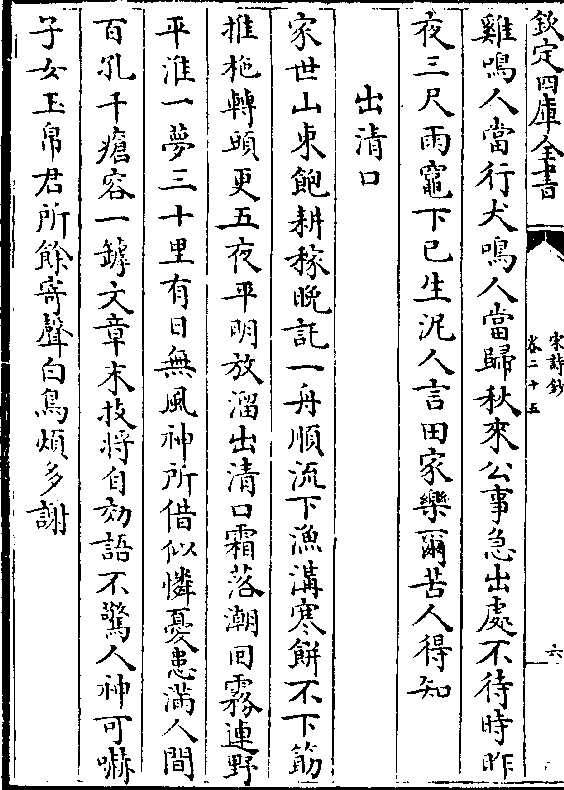 欽定四庫全書
宋詩鈔
卷二十五
六
雞鳴人當行犬鳴人當歸秋來公事急出處不待時昨
夜三尺雨竈下已生泥人言田家樂爾苦人得知
出清口
家世山東飽耕稼晩託一舟順流下漁溝寒餅不下筯
推柂轉頭更五夜平明放溜出清口霜落潮囘霧連野
平淮一夢三十里有日無風神所借似憐憂患滿人間
百孔千瘡容一罅文章末技將自効語不驚人神可嚇
子女玉帛君所餘寄聲白鳥煩多謝